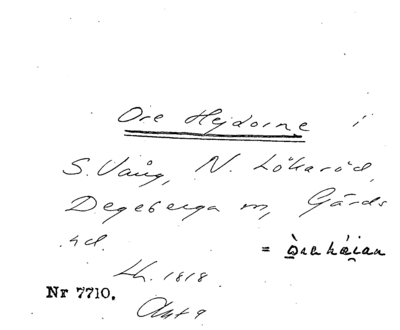 Ore Hejdorne i
S. Vång, N. Lökaröd,
Degeberga m, Gärds
hd.
= òraha̱i̯an
Lh. 1818
Nr 7710. Akt 9